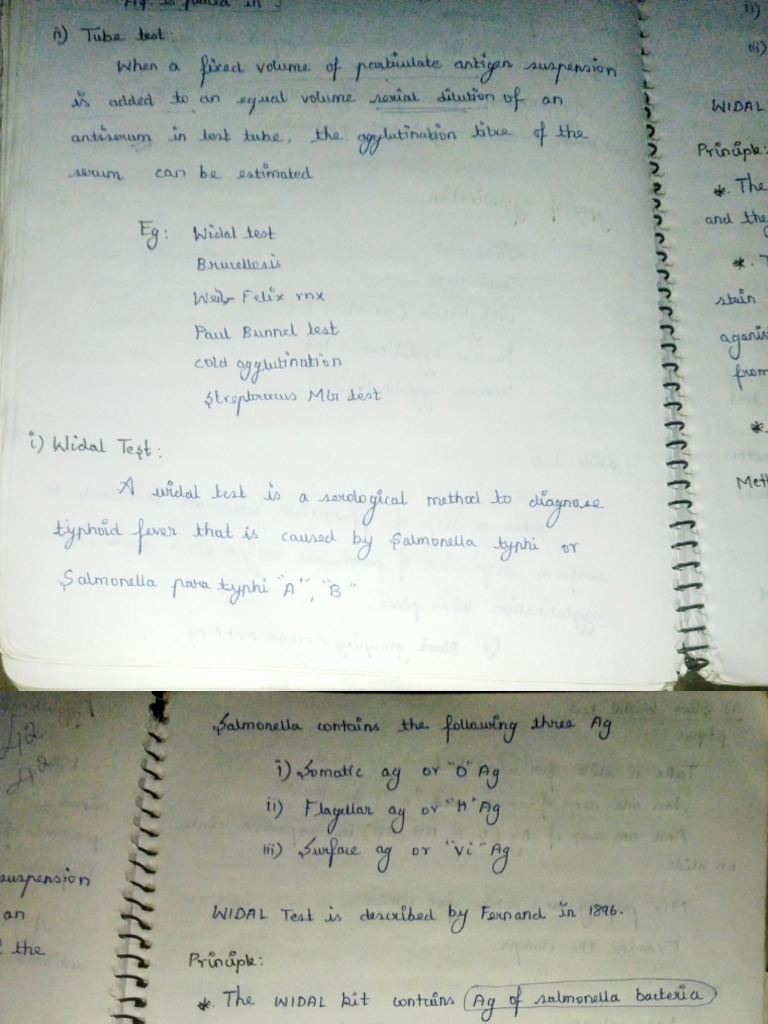 Ag is
ii) Tube test:
When a fixed volume of particulate antigen suspension
is added to an equal volume serial dilution of an
antiserum in test tube, the agglutination titre of the
serum can be estimated
Eg: Widal test
Brucellosis
Weil-Felix rnx
Paul Bunnel test
cold agglutination
Streptococcus MG test
i) Widal Test:
A widal test is a serological method to diagnose
typhoid fever that is caused by Salmonella typhi or
Salmonella para typhi "A", "B"
ii)
iii)
WIDAL
Principle:
*. The
and the
*.
stain
from
*.
Salmonella contains the following three Ag
i) Somatic ag or "O" Ag
ii) Flagellar ag or "H" Ag
iii) Surface ag or "Vi" Ag
WIDAL Test is described by Fernand in 1896.
Principle:
*. The WIDAL kit contains Ag of salmonella bacteria
suspension
an
the